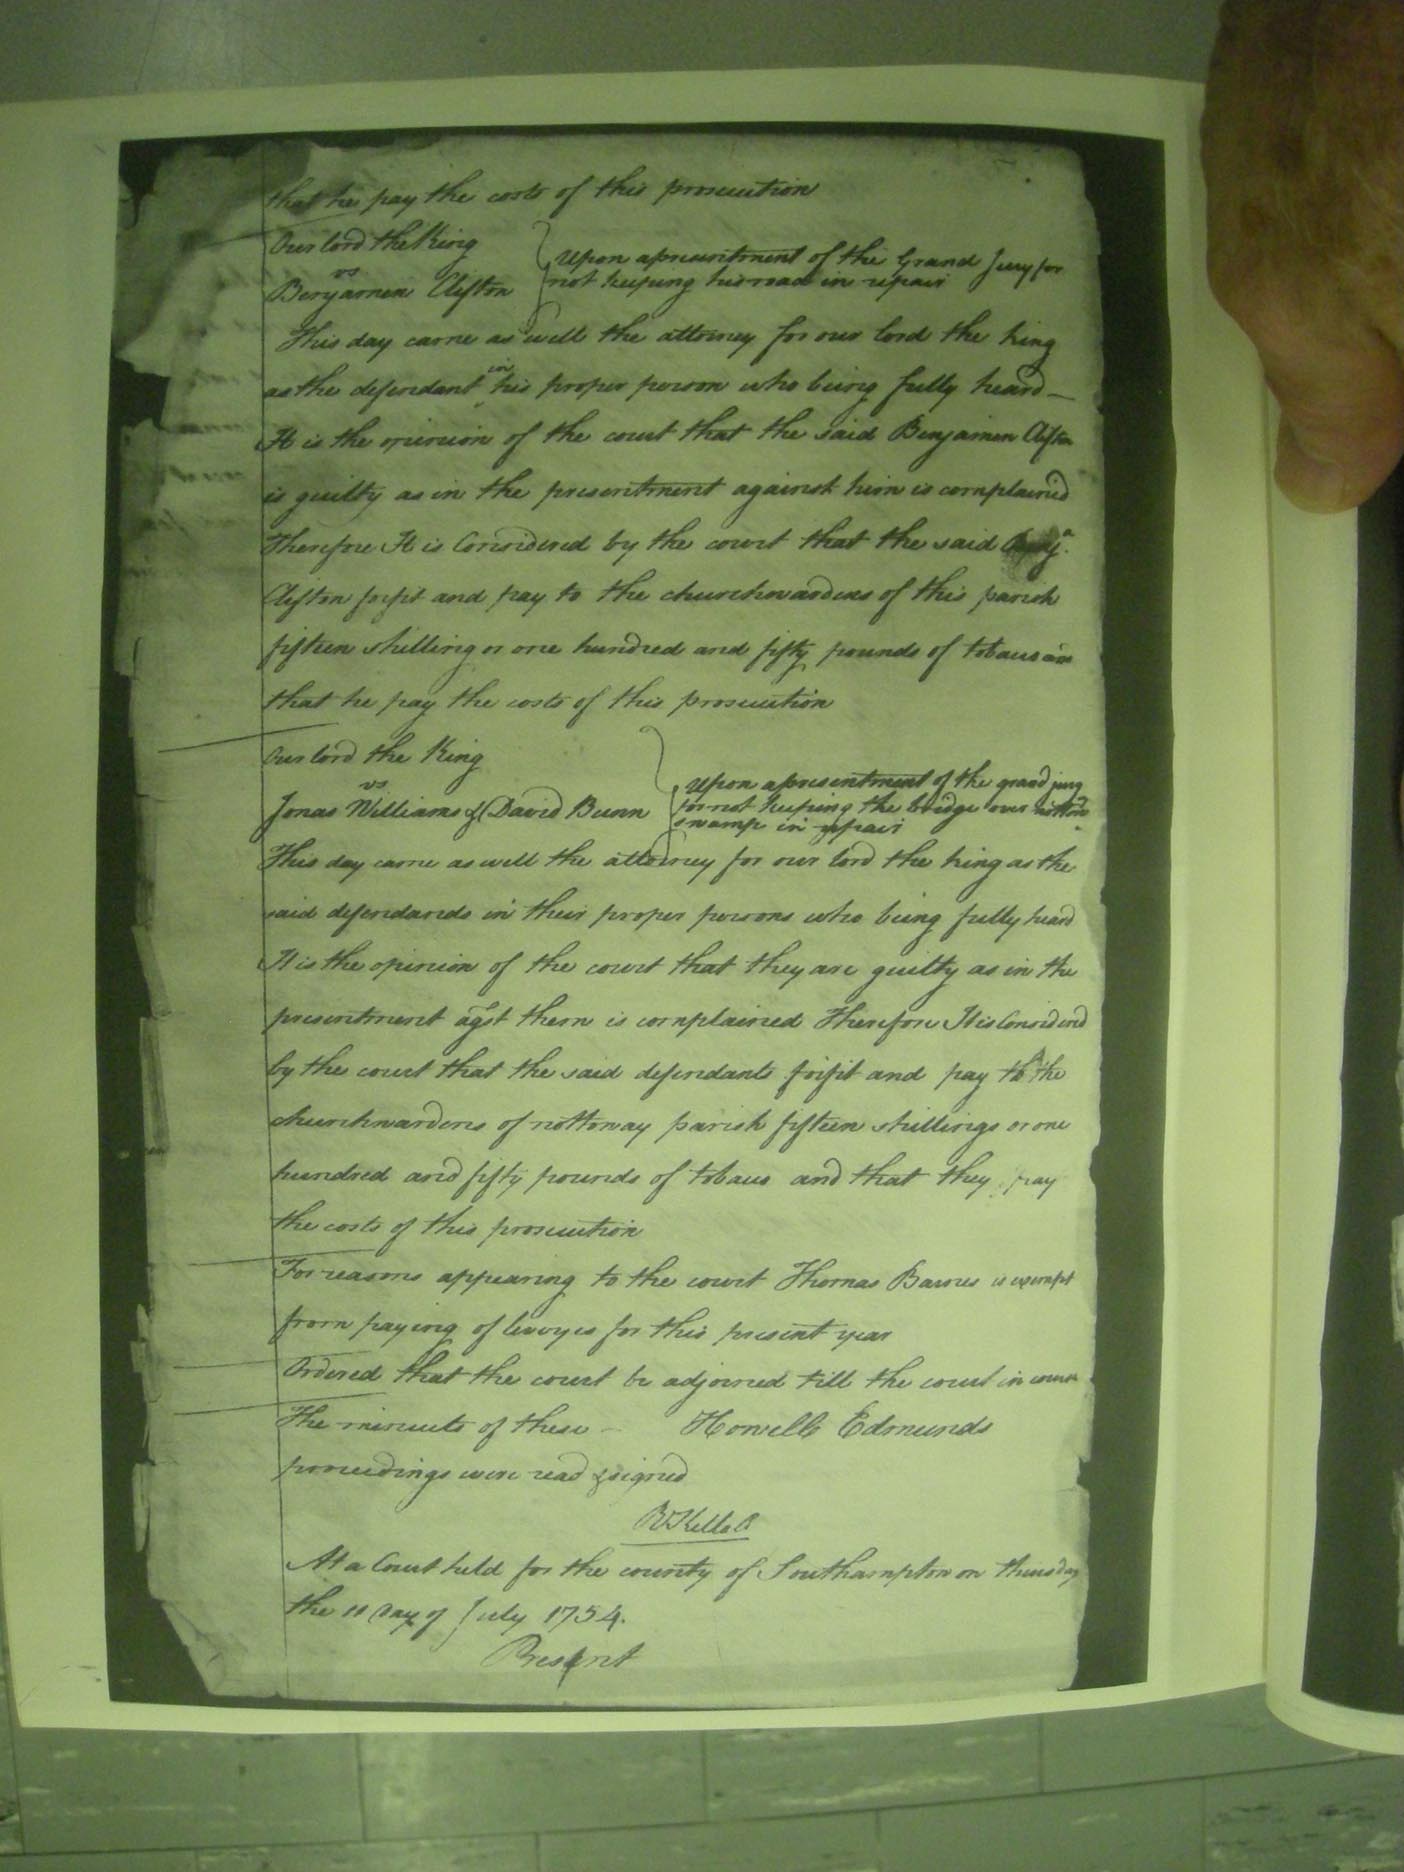 that he pay the costs of this prosecution
Our lord the King
vs
Benjamin Clifton
Upon a presentment of the Grand Jury for
not keeping his road in repair
This day came as well the attorney for our lord the king
as the defendant in his proper person who being fully heard —
It is the opinion of the court that the said Benjamin Clifton
is guilty as in the presentment against him is complained
Therefore It is Considered by the court that the said Benja.
Clifton forfit and pay to the churchwardens of this parish
fifteen shilling or one hundred and fifty pounds of tobacco and
that he pay the costs of this prosecution
Our lord the King
vs
Jonas Williams & David Bunn
Upon a presentment of the grand jury
for not keeping the bridge over
swamp in repair
This day came as well the attorney for our lord the king as the
said defendands in their proper persons who being fully heard
It is the opinion of the court that they are guilty as in the
presentment agst them is complained Therefore It is Considered
by the court that the said defendants forfit and pay to the
churchwardens of nottoway parish fifteen shillings or one
hundred and fifty pounds of tobacco and that they pay
the costs of this prosecution
For reasons appearing to the court Thomas Barnes is exempt
from paying of levvyes for this present year
Ordered that the court be adjorned till the court in course
The minuets of these — Howell Edmunds
proceedings were read & signed
R Kello
At a Court held for the county of Southampton on thursday
the 11 Day of July 1754.
Present